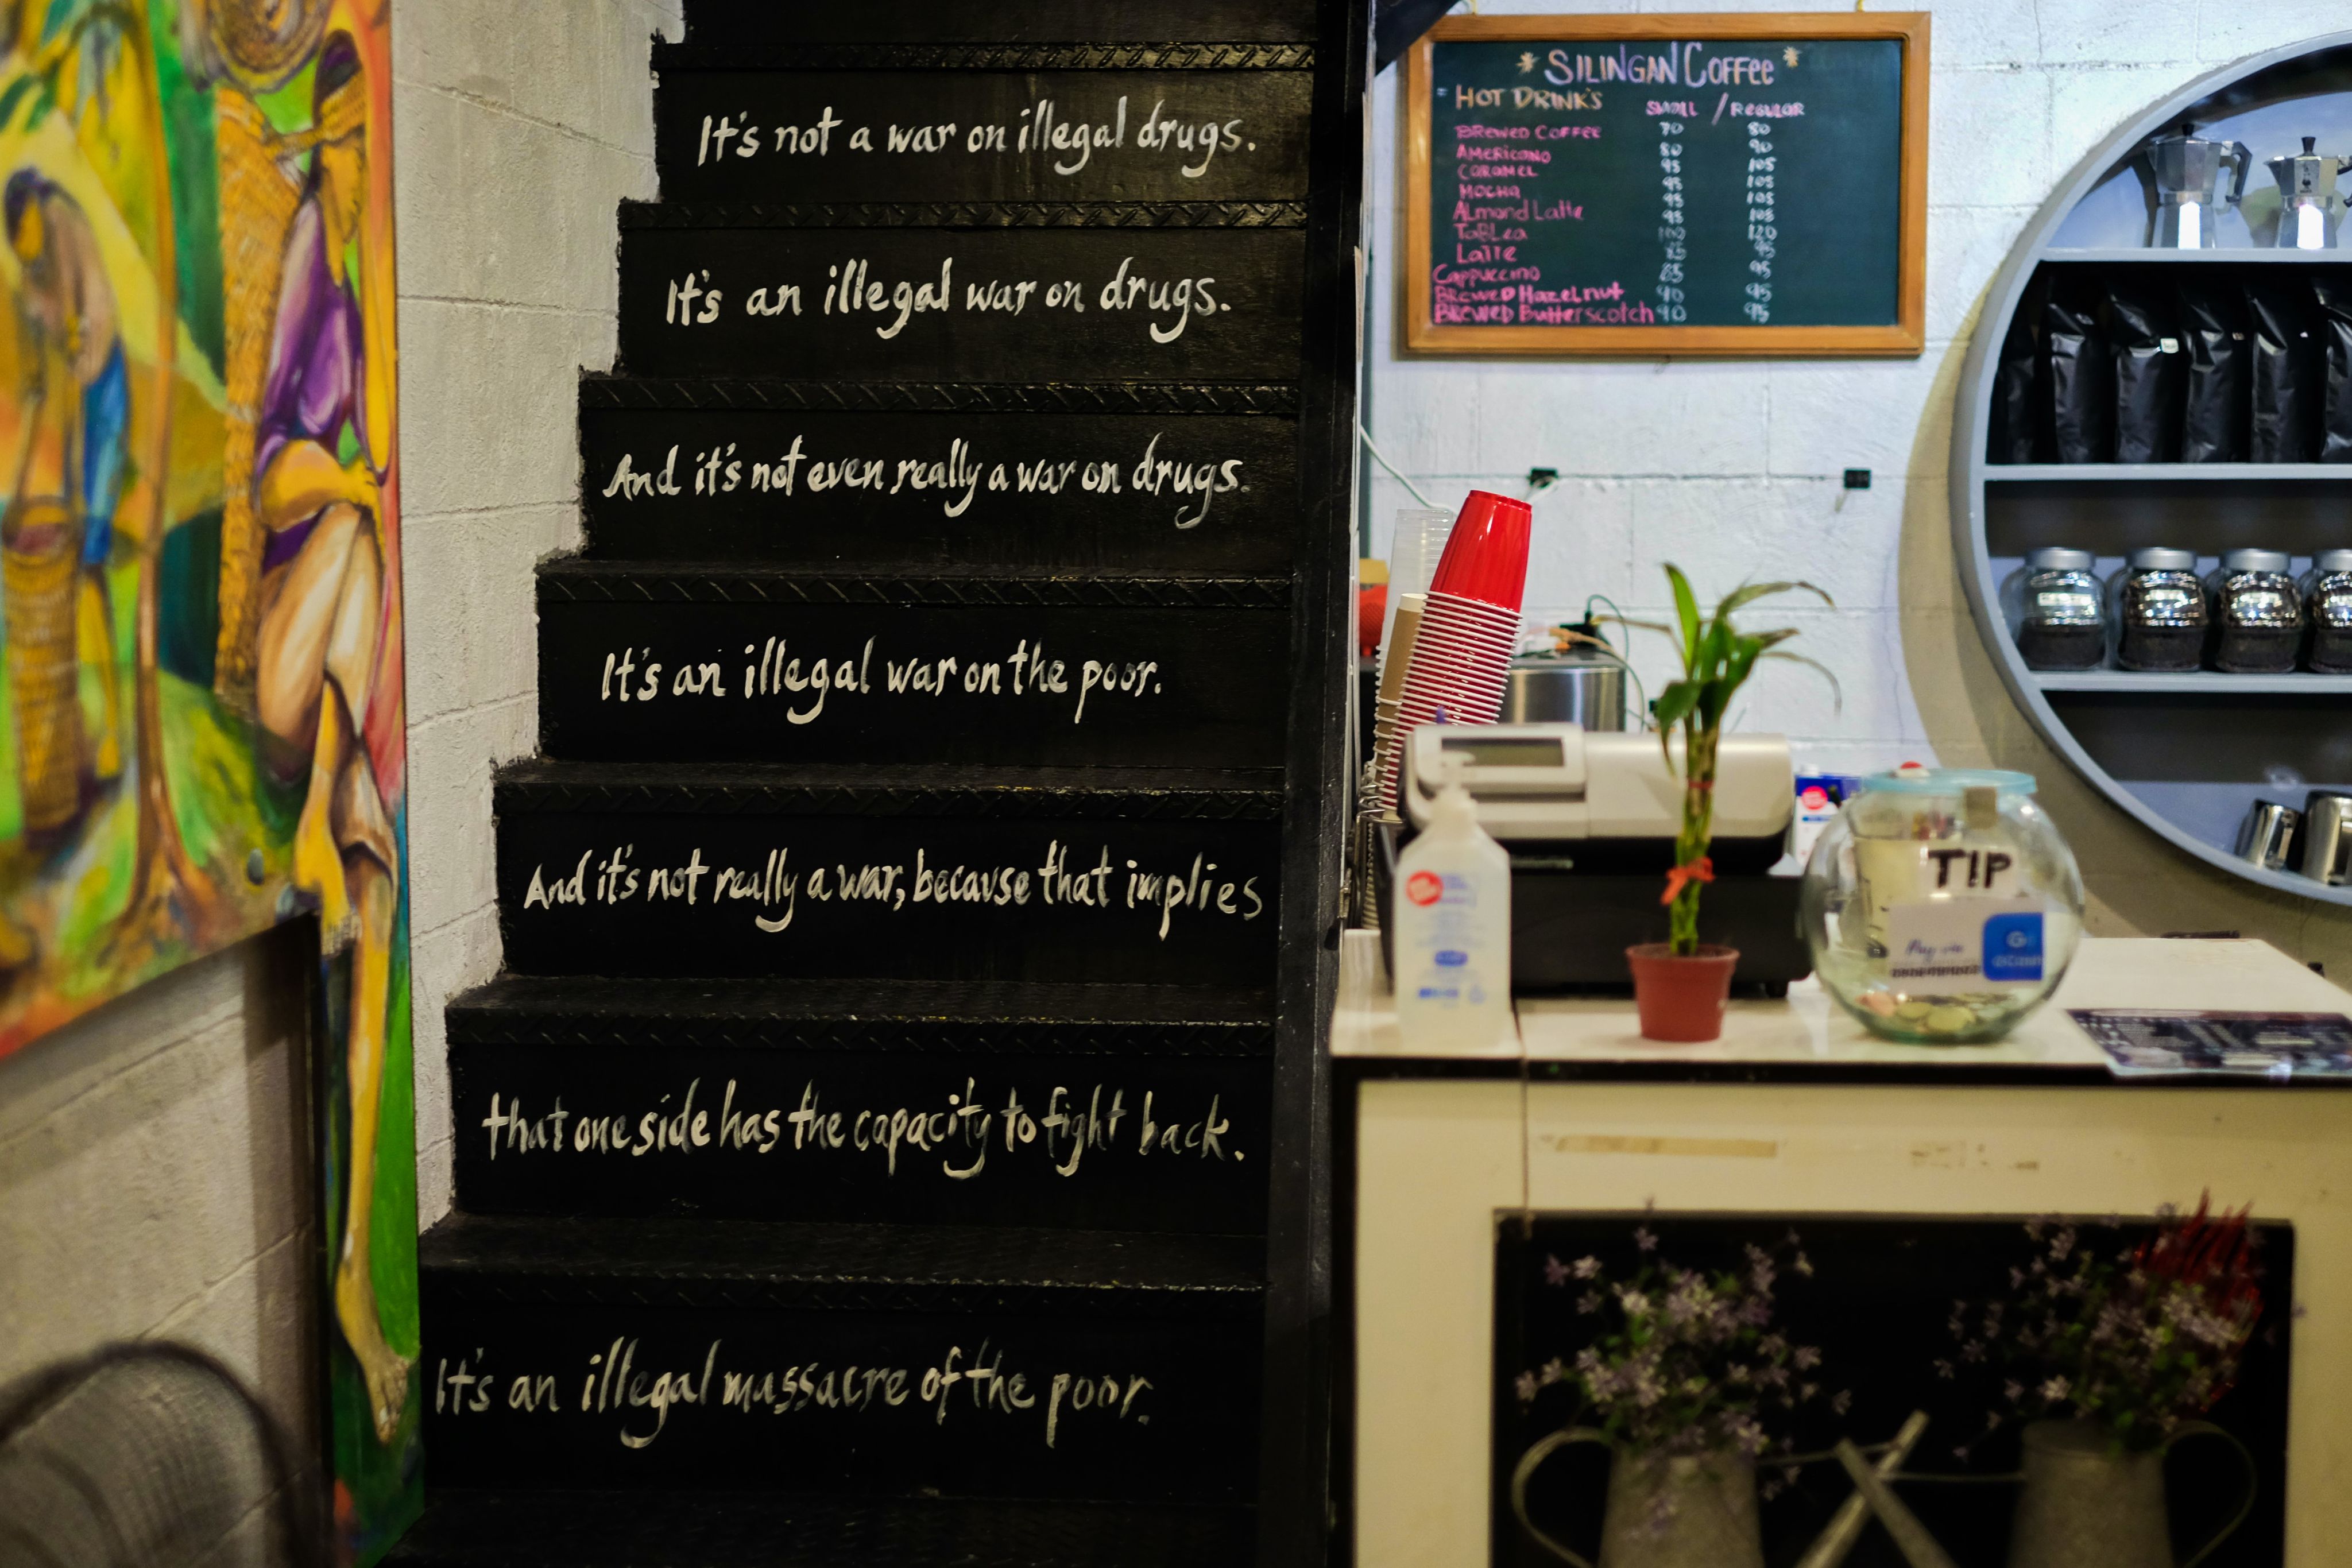 It's not a war on illegal drugs.
It's an illegal war on drugs.
And it's not even really a war on drugs.
It's an illegal war on the poor.
And it's not really a war, because that implies
that one side has the capacity to fight back.
It's an illegal massacre of the poor.
* SILINGAN COFFEE *
HOT DRINK'S SMALL / REGULAR
BREWED COFFEE 70 80
AMERICANO 80 90
CARAMEL 95 105
MOCHA 95 105
Almond Latte 95 105
TaBLea 100 120
Latte 85 95
Cappuccino 85 95
BREWED Hazelnut 90 95
BREWED Butterscotch 90 95
TIP
Pay via
GCash